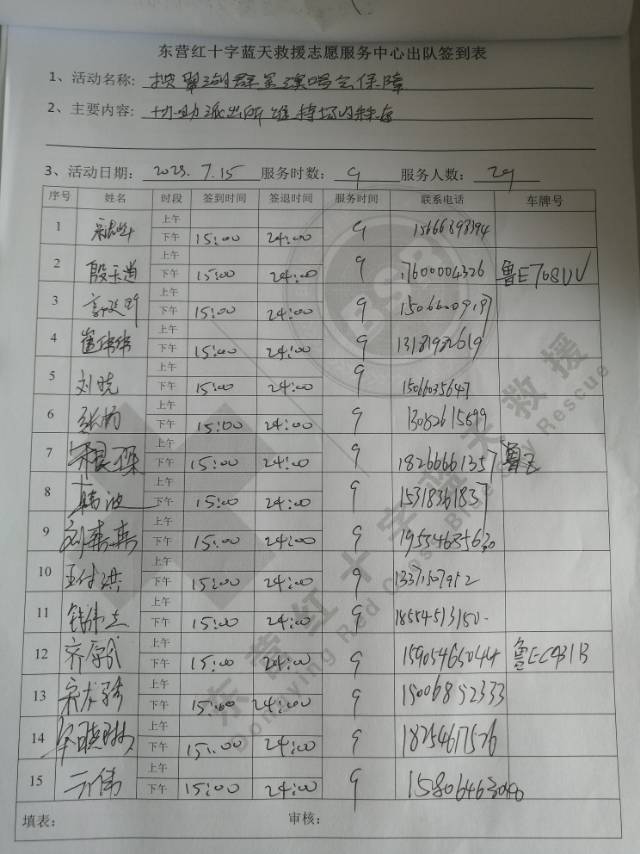 东营红十字蓝天救援志愿服务中心出队签到表
1、活动名称: 揽翠湖群星演唱会保障
2、主要内容: 协助派出所维持场内秩序
3、活动日期: 2023.7.15 服务时数: 9 服务人数: 29
序号 姓名 时段 签到时间 签退时间 服务时间 联系电话 车牌号
上午
1 下午 15:00 24:00 9 15666898194
上午
2 殷玉尚 下午 15:00 24:00 9 17600004326
上午
3 下午 15:00 24:00 9
上午
4 崔伟伟 下午 15:00 24:00 9 13181982619
上午
5 刘晓 下午 15:00 24:00 9 15066035647
上午
6 下午 15:00 24:00 9 13082615899
上午
7 下午 15:00 24:00 9 18266661357
上午
8 韩波 下午 15:00 24:00 9 15318361837
上午
9 刘燕燕 下午 15:00 24:00 9 19554635630
上午
10 王付洪 下午 15:00 24:00 9 13371507952
上午
11 钱伟杰 下午 15:00 24:00 9 18554513150
上午
12 下午 15:00 24:00 9 15905466044
上午
13 宋龙骑 下午 15:00 24:00 9 15006892333
上午
14 下午 15:00 24:00 9 18254617526
上午
15 下午 15:00 24:00 9
填表: 审核:
东营红十字蓝天救援
Dongying Red Cross Blue Sky Rescue